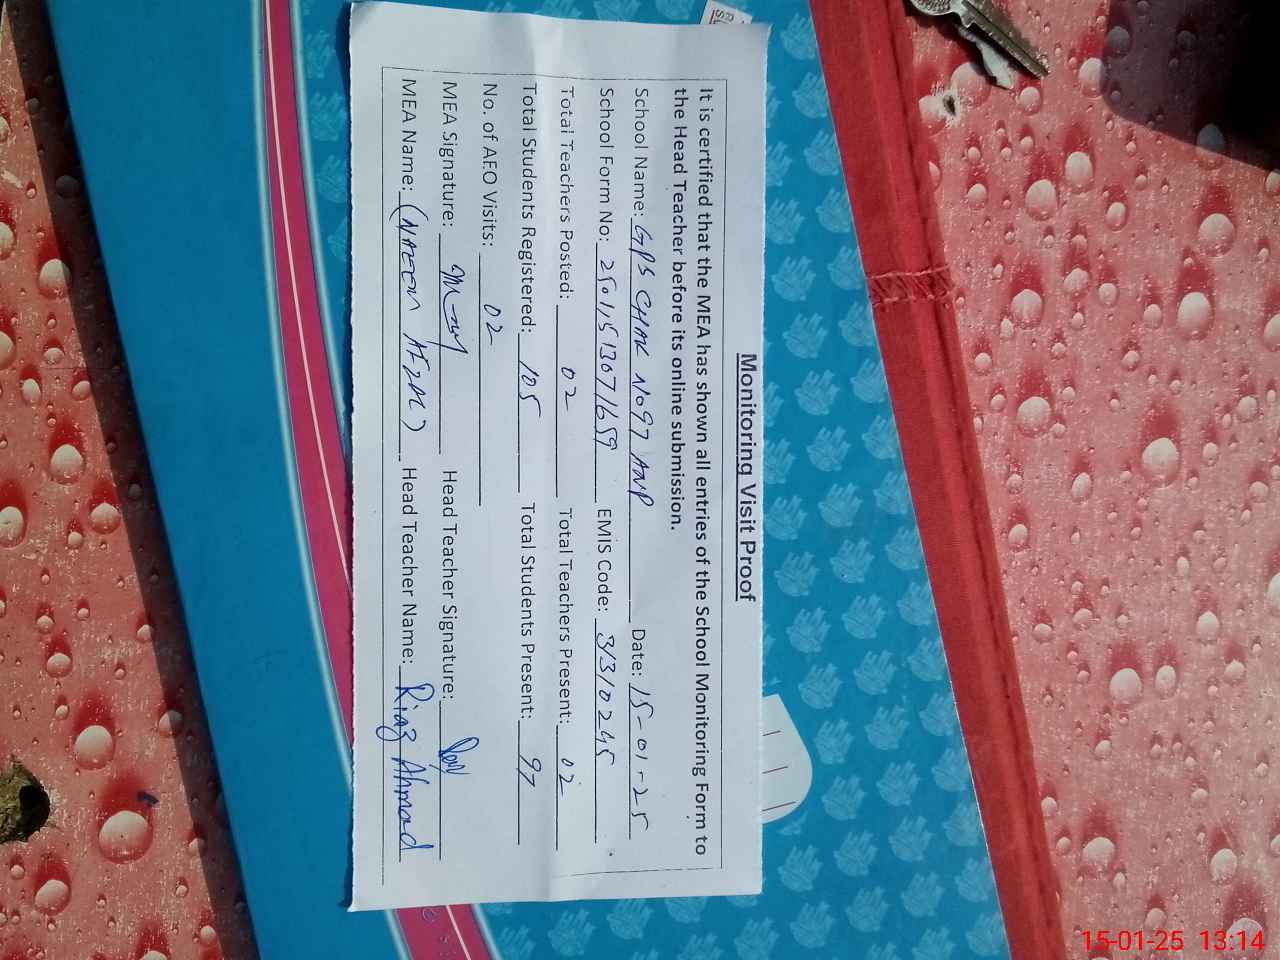 Monitoring Visit Proof
It is certified that the MEA has shown all entries of the School Monitoring Form to
the Head Teacher before its online submission.
School Name: GPS CHAK NO 97 ANP Date: 15-01-25
School Form No: 25011513071659 EMIS Code: 31310245
Total Teachers Posted: 02 Total Teachers Present: 02
Total Students Registered: 105 Total Students Present: 97
No. of AEO Visits: 02
MEA Signature: Head Teacher Signature:
MEA Name: (NAEEM AZAM) Head Teacher Name: Riaz Ahmad
15-01-25 13:14